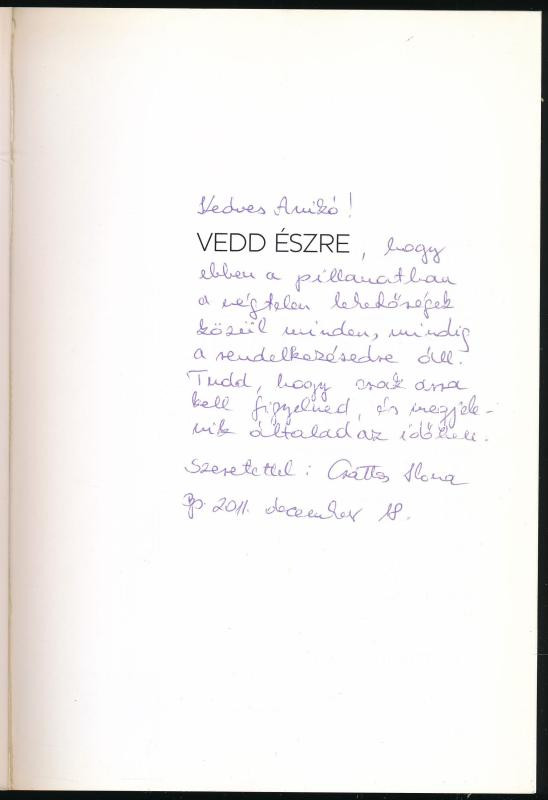 Kedves Anikó!
VEDD ÉSZRE, hogy
ebben a pillanatban
a végtelen lehetőségek
közül minden, mindig
a rendelkezésedre áll.
Tudd, hogy csak arra
kell figyelned, és megjele-
nik általad az időben.
Szeretettel: Csáttos Ilona
Bp. 2011. december 18.